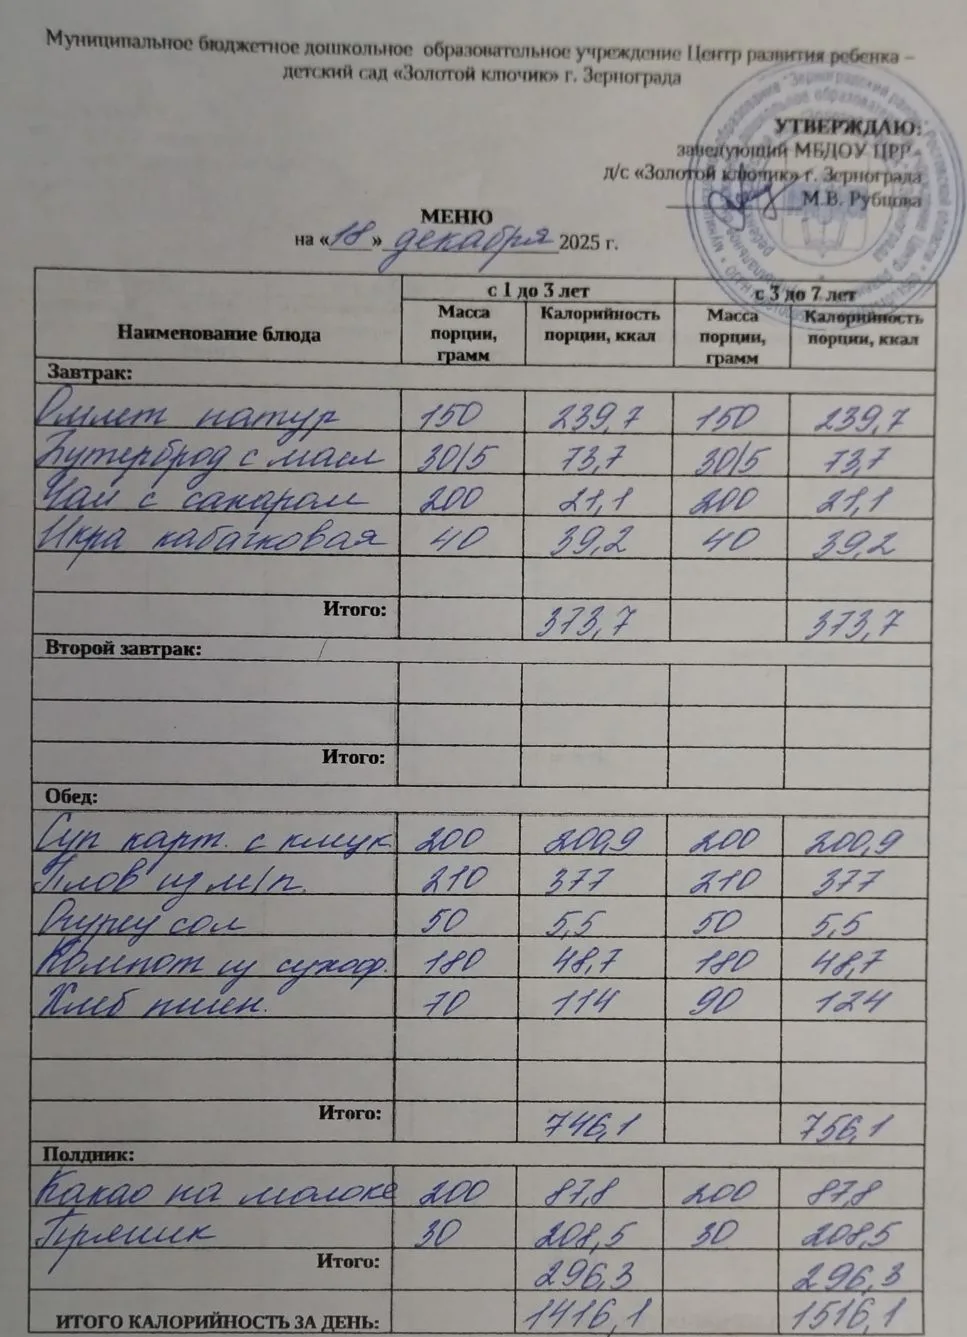 Муниципальное бюджетное дошкольное образовательное учреждение Центр развития ребенка –
детский сад «Золотой ключик» г. Зернограда
УТВЕРЖДАЮ:
заведующий МБДОУ ЦРР -
д/с «Золотой ключик» г. Зернограда
М.В. Рубцова
МЕНЮ
на «18» декабря 2025 г.
Наименование блюда с 1 до 3 лет с 3 до 7 лет
Масса порции, грамм Калорийность порции, ккал Масса порции, грамм Калорийность порции, ккал
Завтрак:
Омлет натур 150 239,7 150 239,7
Бутерброд с масл 30/5 73,7 30/5 73,7
Чай с сахаром 200 21,1 200 21,1
Икра кабачковая 40 39,2 40 39,2
Итого: 373,7 373,7
Второй завтрак:
Итого:
Обед:
Суп карт. с клцк 200 200,9 200 200,9
Плов из м/п. 210 377 210 377
Огурец сол 50 5,5 50 5,5
Компот из сухоф. 180 48,7 180 48,7
Хлеб пшен. 70 114 90 124
Итого: 746,1 756,1
Полдник:
Какао на молоке 200 87,8 200 87,8
Пряник 30 208,5 30 208,5
Итого: 296,3 296,3
ИТОГО КАЛОРИЙНОСТЬ ЗА ДЕНЬ: 1416,1 1516,1